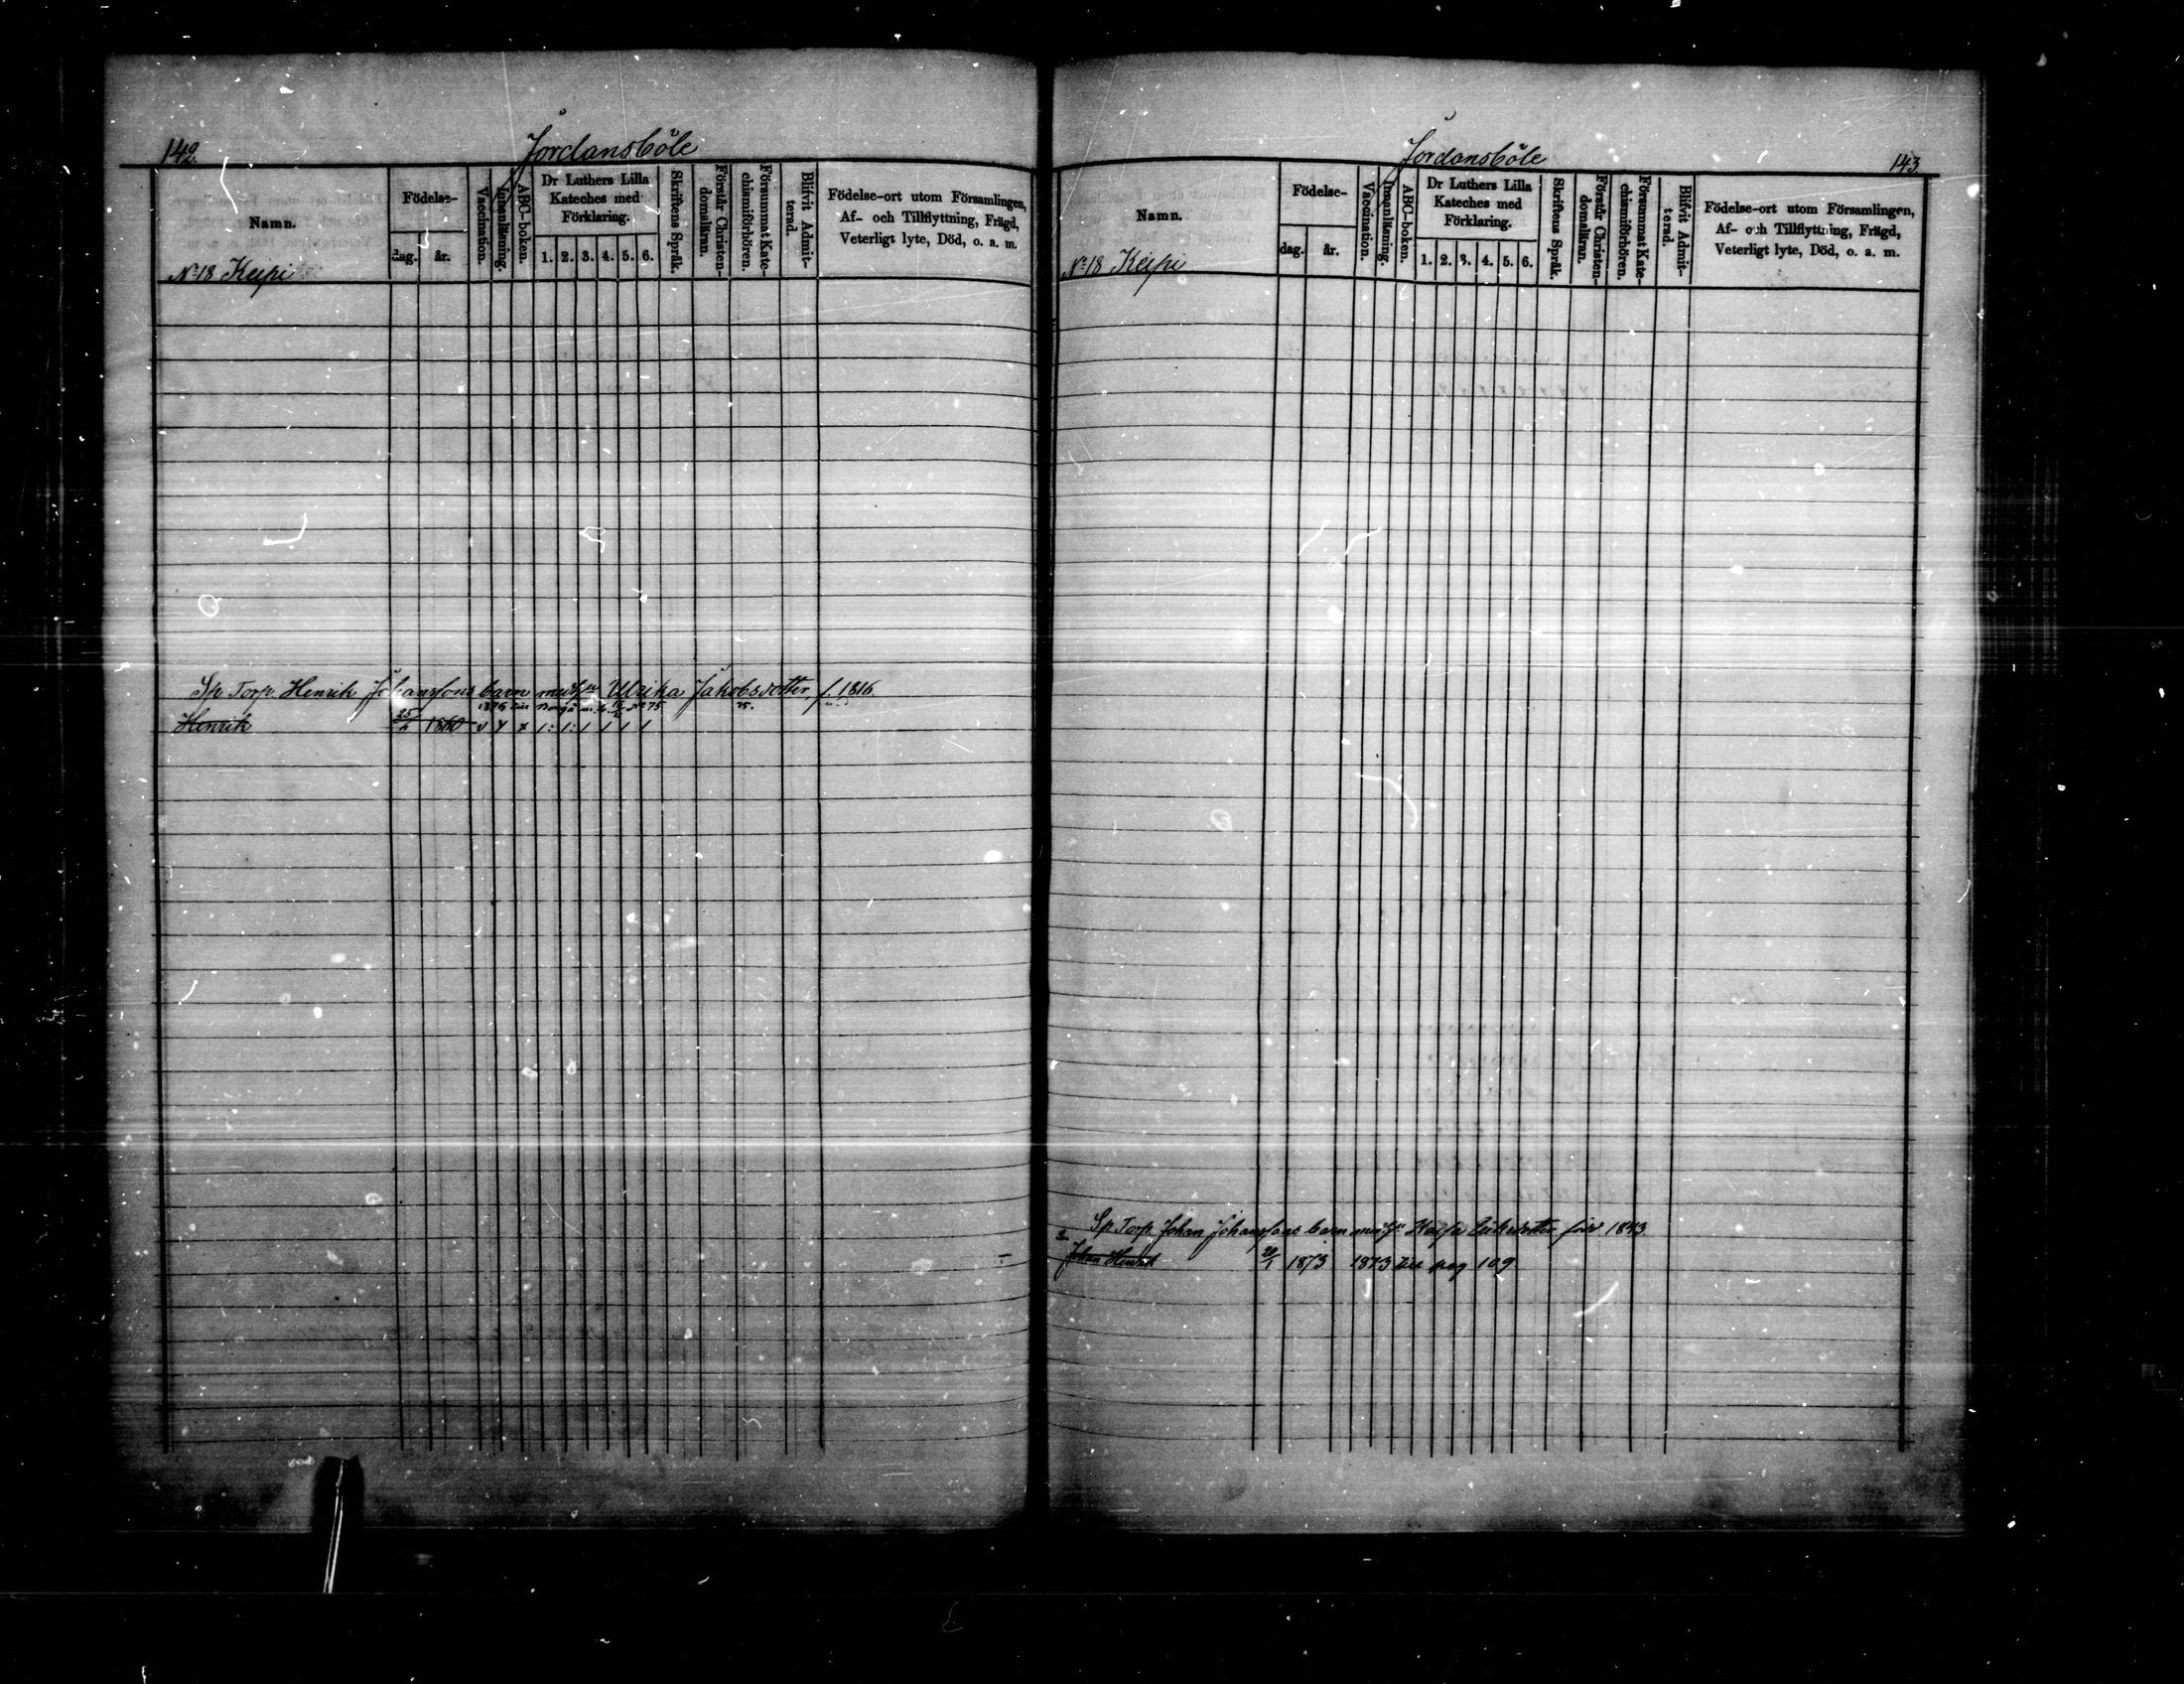 142.
Jordansböle
Namn.
Födelse-
dag.
år.
Vaccination.
Innanläsning.
ABC-boken.
Dr Luthers Lilla
Kateches med
Förklaring.
1. 2. 3. 4. 5. 6.
Skriftens Språk.
Förstår Christen-
domsläran.
Försummat Kate-
chismiförhören.
Blifvit Admit-
terad.
Födelse-ort utom Församlingen,
Af- och Tillflyttning, Frägd,
Veterligt lyte, Död, o. a. m.
No 18 Keipi
Sp. Torp. Henrik Johanssons barn med h. Ulrika Jakobsdotter, f. 1816.
1876 No 75 75.
Henrik 25/2 1860 v Y x 1: 1: 1 1 1 1
Jordansböle
143.
Namn.
Födelse-
dag.
år.
Vaccination.
Innanläsning.
ABC-boken.
Dr Luthers Lilla
Kateches med
Förklaring.
1. 2. 3. 4. 5. 6.
Skriftens Språk.
Förstår Christen-
domsläran.
Försummat Kate-
chismiförhören.
Blifvit Admit-
terad.
Födelse-ort utom Församlingen,
Af- och Tillflyttning, Frägd,
Veterligt lyte, Död, o. a. m.
No 18 Keipi
Sp. Torp. Johan Johanssons barn med h. Kajsa 1843.
Johan Henrik 20/1 1873 1873 till pag 109